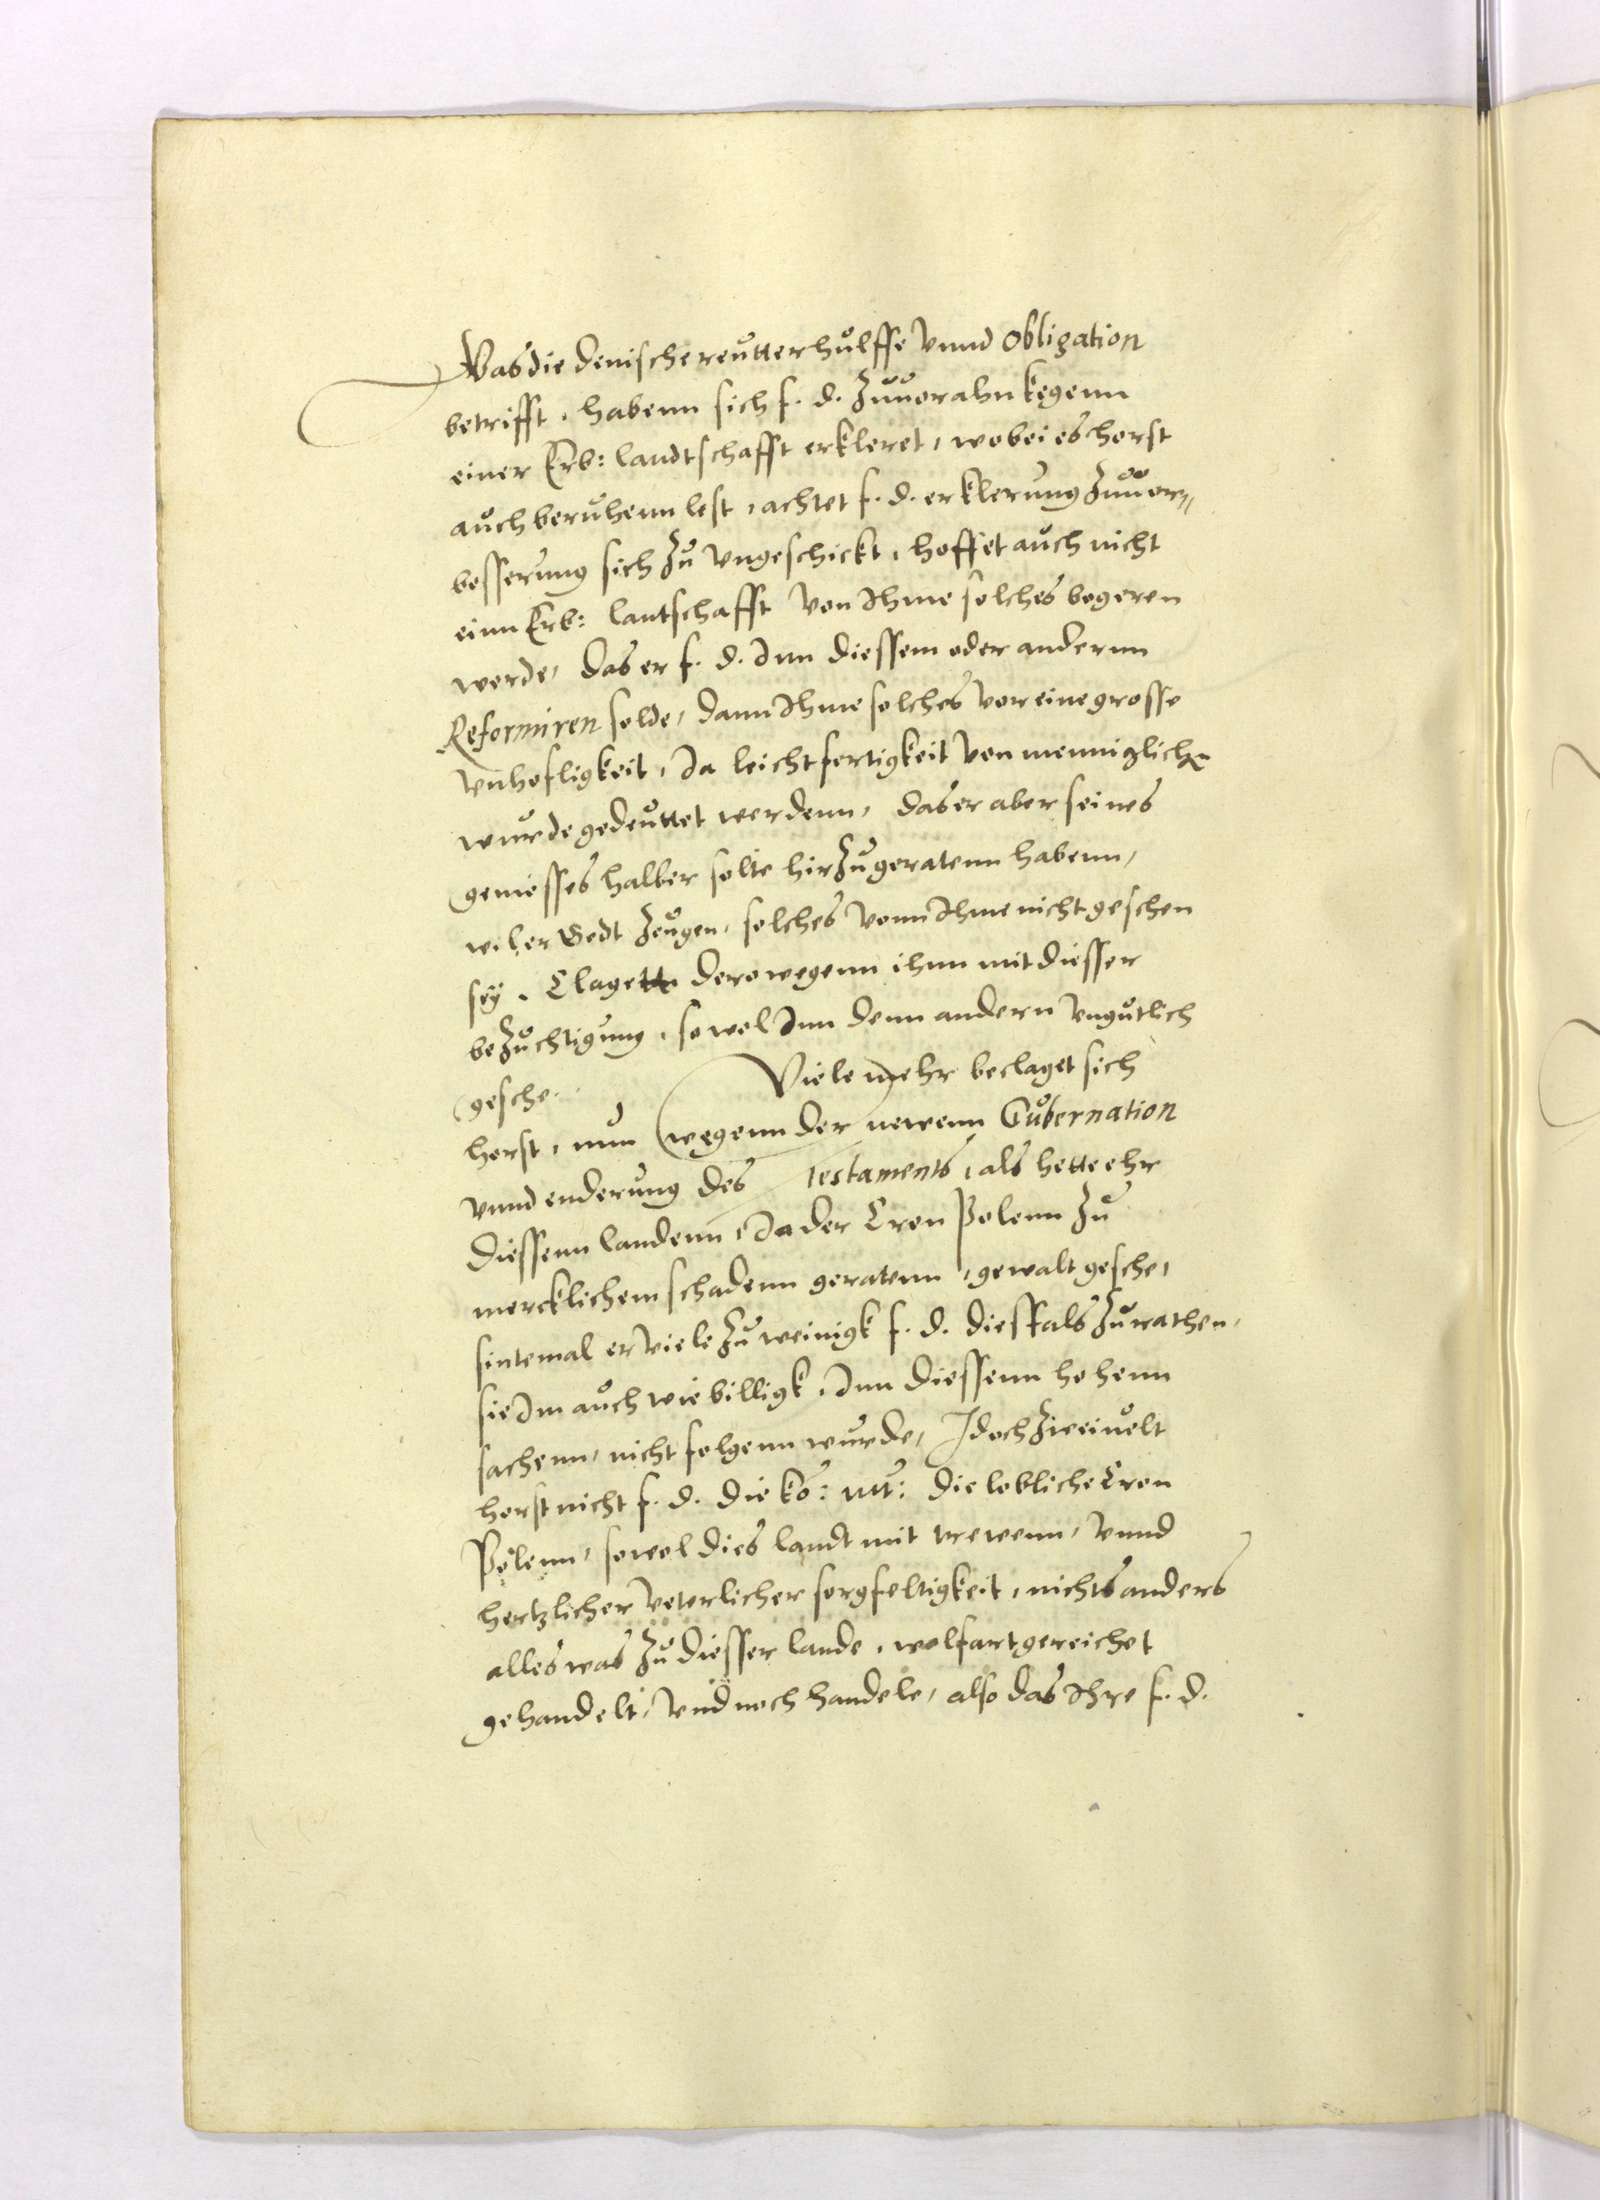 Was die denische reutter hulffe vnnd obligation
betrifft, habenn sich f. d. zuuorahn kegenn
einer Erb: landtschafft erkleret, wobei es horst
auch beruhenn lest, achtet f. d. erklerung zuuor=
besserung sich zu vngeschickt, hoffet auch nicht
einn Erb: lantschafft von Ihme solches begeren
werde, das er f. d. Inn diessem oder anderm
Reformiren solde, dann Ihme solches vor eine grosse
vnhofligkeit, Ja leichtfertigkeit von menniglich
wurde gedeuttet werdenn, das er aber seines
geniesses halber solte hirzu geratenn habenn,
wil er Gott zeugen, solches vonn Ihme nicht geschen
sey. Clagett derowegenn ihnn mit diesser
bezuchtigung, so wol Inn denn andern vngutlich
gesche. Viele mehr beclaget sich
horst, nun wegenn der newenn Gubernation
vnnd enderung des testaments, als hette ehr
diessenn landenn, Ja der Cron Polenn zu
mercklichem schadenn geratenn, gewalt gesche,
sintemal er viele zu weinigk f. d. diesfals zu rathen,
sie Im auch wie billigk, Inn diessenn hohenn
sachenn, nicht folgenn wurde, Idoch zweiuelt
horst nicht f. d. die ko: mt: die lobliche Cron
Polenn, so wol dies landt mit trewenn, vnnd
hertzlicher veterlicher sorgfeltigkeit, nichts anders
alles was zu diesser lande, wolfart gereichet
gehandelt, vnd noch handele, also das Ihre f. d.